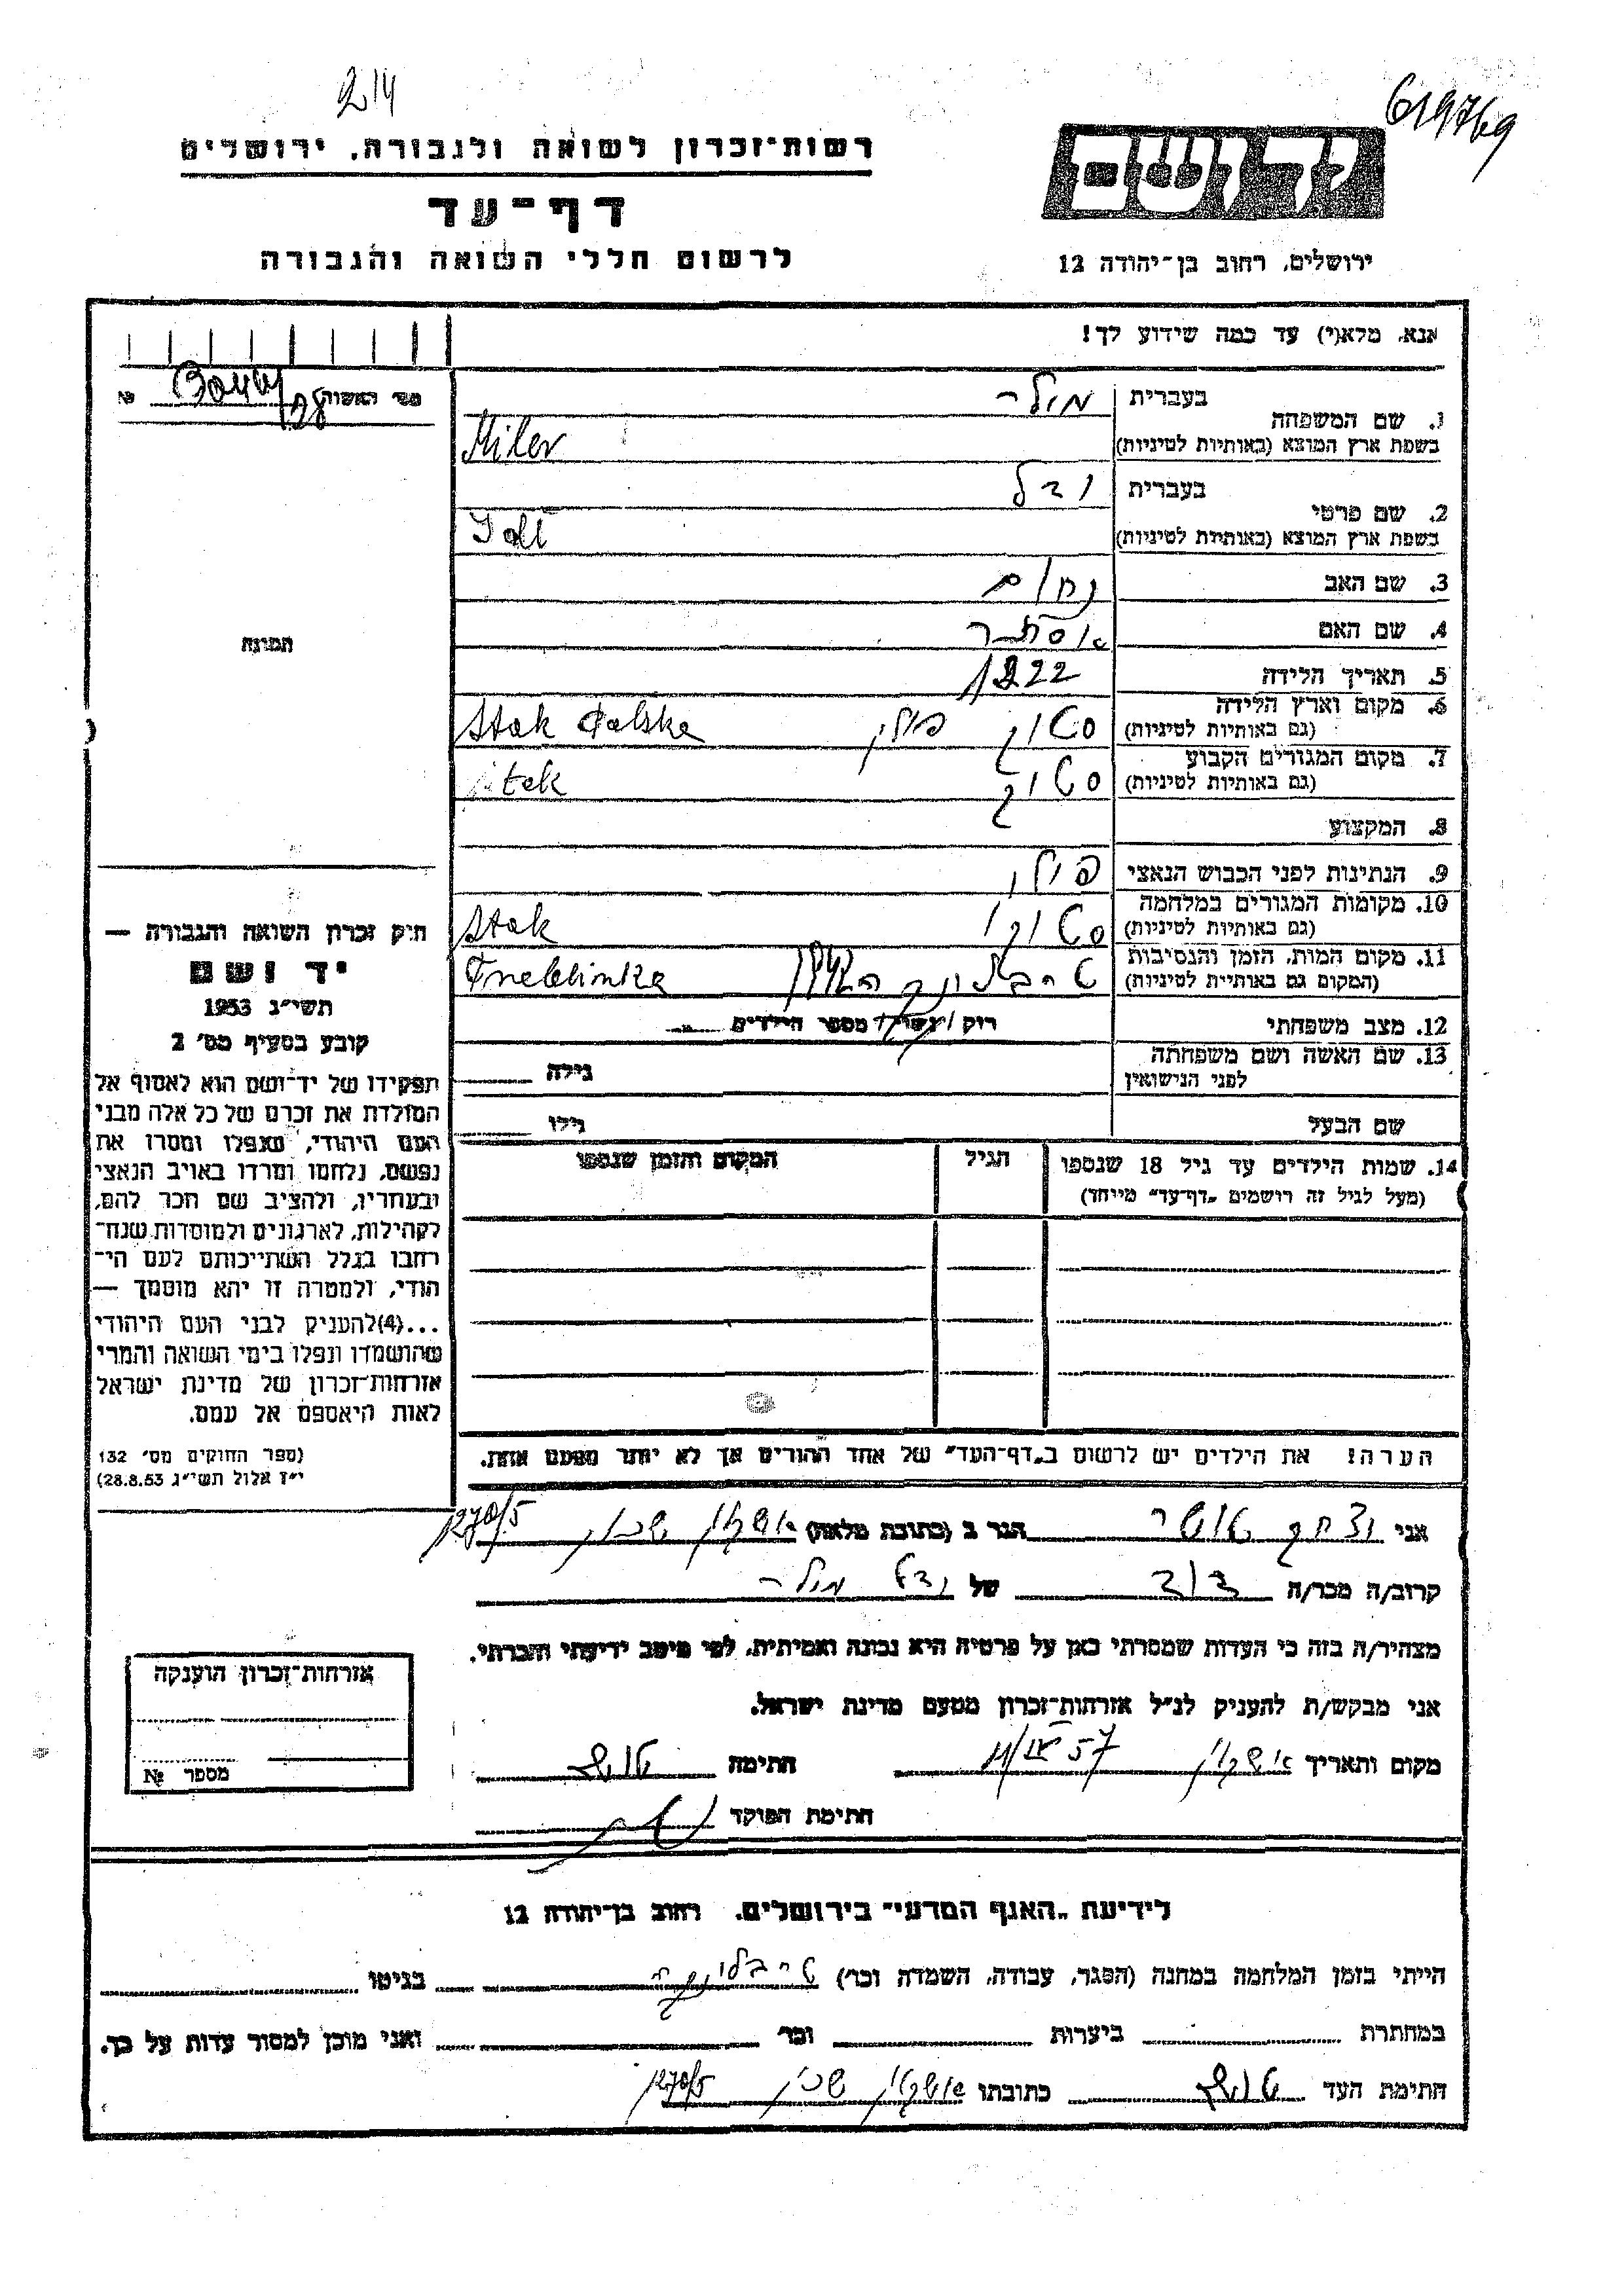 214
619769
רשות־זכרון לשואה ולגבורה, ירושלים
דף־עד
לרשום חללי השואה והגבורה
ידושם
ירושלים, רחוב בן־יהודה 12
אנא, מלא(י) עד כמה שידוע לך!
1. שם המשפחה בעברית מילר
בשפת ארץ המוצא (באותיות לטיניות) Miler
2. שם פרטי בעברית
בשפת ארץ המוצא (באותיות לטיניות)
3. שם האב נחום
4. שם האם אסתר
5. תאריך הלידה
6. מקום וארץ הלידה סטוק פולין Stok Polska
(גם באותיות לטיניות)
7. מקום המגורים הקבוע סטוק Stok
(גם באותיות לטיניות)
8. המקצוע
9. הנתינות לפני הכבוש הנאצי פולין
10. מקומות המגורים במלחמה סטוק Stok
(גם באותיות לטיניות)
11. מקום המות, הזמן והנסיבות טרבלינקה Treblinka
(המקום גם באותיות לטיניות)
12. מצב משפחתי רוק/ נשוי/ מספר הילדים
13. שם האשה ושם משפחתה
לפני הנישואין גילה
שם הבעל גילו
14. שמות הילדים עד גיל 18 שנספו הגיל המקום והזמן שנספו
(מעל לגיל זה רושמים „דף־עד" מיוחד)
הערה! את הילדים יש לרשום ב„דף־העד" של אחד ההורים אך לא יותר מפעם אחת.
№
התמונה
חוק זכרון השואה והגבורה —
יד ושם
תשי"ג 1953
קובע בסעיף מס' 2
תפקידו של יד־ושם הוא לאסוף אל
המולדת את זכרם של כל אלה מבני
העם היהודי, שנפלו ומסרו את
נפשם, נלחמו ומרדו באויב הנאצי
ובעוזריו, ולהציב שם וזכר להם,
לקהילות, לארגונים ולמוסדות שנח־
רבו בגלל השתייכותם לעם הי־
הודי, ולמטרה זו יהא מוסמך —
...(4)להעניק לבני העם היהודי
שהושמדו ונפלו בימי השואה והמרי
אזרחות־זכרון של מדינת ישראל
לאות היאספם אל עמם.
(ספר החוקים מס' 132
י"ז אלול תשי"ג 28.8.53)
אני יצחק הגר ב (כתובת מלאה) אשקלון שכון 1270/5
קרוב/ה מכר/ה של מילר
מצהיר/ה בזה כי העדות שמסרתי כאן על פרטיה היא נכונה ואמיתית, לפי מיטב ידיעתי והכרתי.
אני מבקש/ת להעניק לנ"ל אזרחות־זכרון מטעם מדינת ישראל.
מקום ותאריך אשקלון 57 חתימה
חתימת הפוקד
אזרחות־זכרון הוענקה
מספר №
לידיעת „האגף המדעי" בירושלים, רחוב בן־יהודה 12
הייתי בזמן המלחמה במחנה (הסגר, עבודה, השמדה וכו') טרבלינקה בגיטו
במחתרת ביערות וכו' ואני מוכן למסור עדות על כך.
חתימת העד כתובתו אשקלון שכון 1270/5